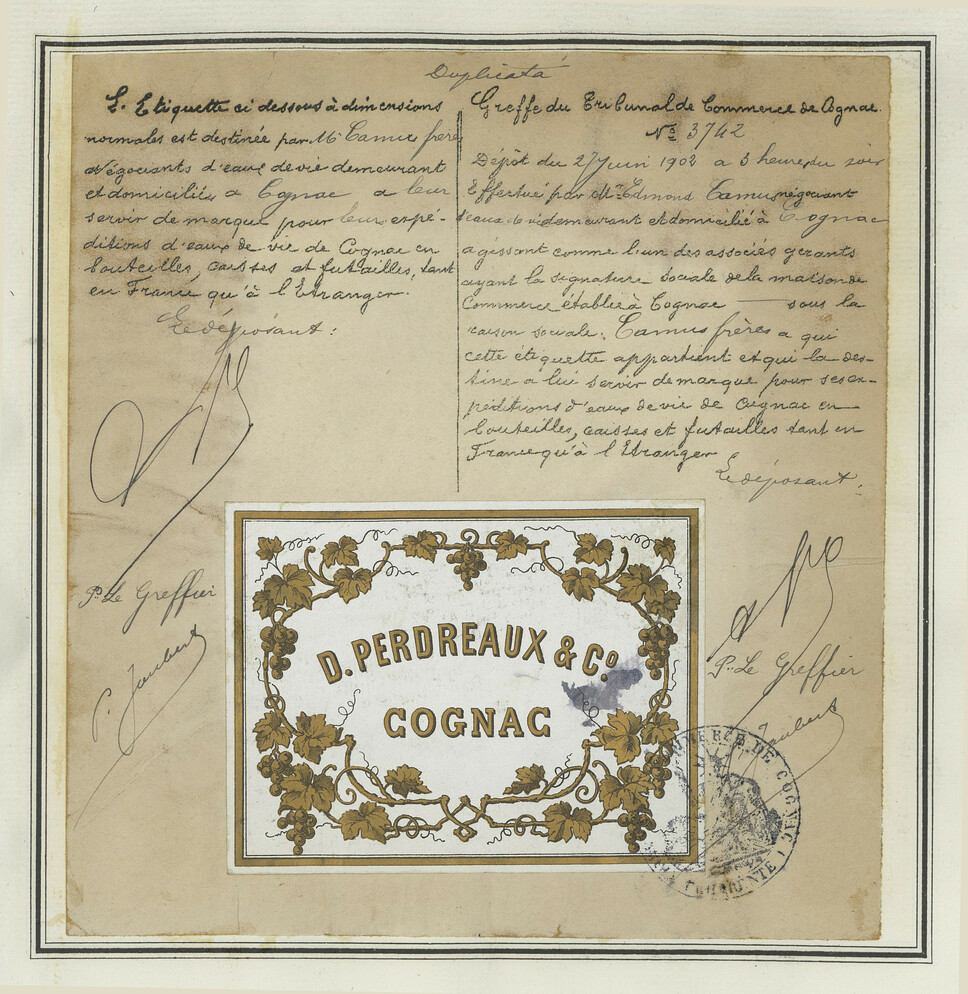 Duplicata
L. Etiquette ci dessous à dimensions
normales est destinée par Mr Camus frères
négociants d'eaux de vie demeurant
et domiciliés à Cognac a leur
servir de marque pour leur expé-
ditions d'eaux de vie de Cognac en
bouteilles, caisses et futailles, tant
en France qu'à l'Etranger.
Le déposant :
Pr Le Greffier
P. Jaubert
Greffe du Tribunal de Commerce de Cognac.
No 3742
Dépôt du 27 Juin 1902 a 3 heure du soir
Effectué par Mr Edmond Camus négociant
d'eaux de vie demeurant et domicilié à Cognac
agissant comme l'un des associés gerants
ayant la signature sociale de la maison de
Commerce établie à Cognac — sous la
raison sociale: Camus frères a qui
cette étiquette appartient et qui la des-
tine a lui servir de marque pour ses ex-
péditions d'eaux de vie de Cognac en
bouteilles, caisses et futailles tant en
France qu'à l'Etranger
Le déposant :
Pr Le Greffier
Jaubert
D. PERDREAUX & Co
COGNAC
COMMERCE DE COGNAC
CHARENTE